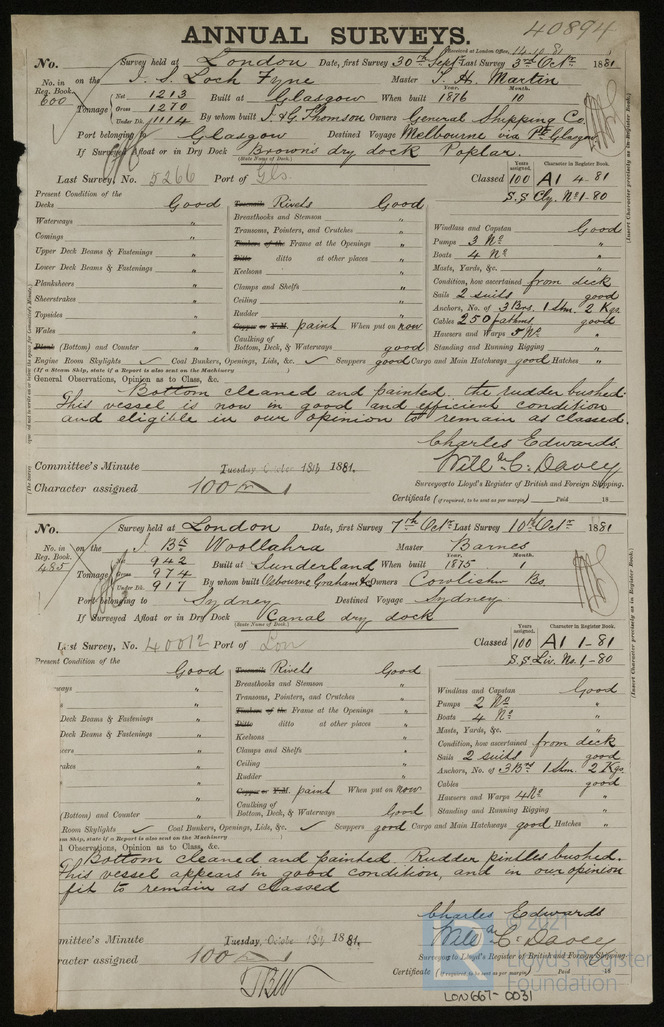 40894
ANNUAL SURVEYS.
Received at London Office, 14.10.81
No. Survey held at London Date, first Survey 30th Septr Last Survey 3rd Octr 1881
No. in Reg. Book. 600 on the I. S. Loch Fyne Master T. H. Martin
Tonnage Net 1213 Gross 1270 Under Dk. 1114 Built at Glasgow When built Year. 1876 Month. 10
By whom built J. & G. Thomson Owners General Shipping Co.
Port belonging to Glasgow Destined Voyage Melbourne via Pt Glasgow
If Surveyed Afloat or in Dry Dock Brown's dry dock Poplar.
(State Name of Dock.)
Last Survey, No. 5266 Port of Gls. Classed Years assigned. 100 Character in Register Book. A1 4.81
S.S Cly. No 1-80
(Insert Character precisely as in Register Book.)
Present Condition of the
Decks Good
Waterways "
Comings "
Upper Deck Beams & Fastenings "
Lower Deck Beams & Fastenings "
Planksheers "
Sheerstrakes "
Topsides "
Wales "
(Bottom) and Counter "
Treenails Rivets Good
Breasthooks and Stemson "
Transoms, Pointers, and Crutches "
Timbers of the Frame at the Openings "
Ditto ditto at other places "
Keelsons "
Clamps and Shelfs "
Ceiling "
Rudder "
Copper or Y.M. paint When put on now
Caulking of Bottom, Deck, & Waterways good
Windlass and Capstan Good
Pumps 3 No "
Boats 4 No "
Masts, Yards, &c. "
Condition, how ascertained from deck
Sails 2 suits good
Anchors, No. of 3 Brs. 1 Stm. 2 Kgs.
Cables 250 fathoms good
Hawsers and Warps 5 No "
Standing and Running Rigging "
Engine Room Skylights ✓ Coal Bunkers, Openings, Lids, &c. ✓ Scuppers good Cargo and Main Hatchways good Hatches "
(If a Steam Ship, state if a Report is also sent on the Machinery )
General Observations, Opinion as to Class, &c.
Bottom cleaned and painted. the rudder bushed.
This vessel is now in good and efficient condition
and eligible in our opinion to remain as classed.
Charles Edwards
Willm C. Davey
Surveyors to Lloyd's Register of British and Foreign Shipping.
Committee's Minute Tuesday October 18th 1881.
Character assigned 100 A 1
Certificate (if required, to be sent as per margin) Paid 18
No. Survey held at London Date, first Survey 7th Octr Last Survey 10th Octr 1881
No. in Reg. Book. 485 on the I. Bk Woollahra Master Barnes
Tonnage Net 942 Gross 974 Under Dk. 917 Built at Sunderland When built Year. 1875 Month. 1
By whom built Osbourne Graham & Co Owners Cowlishw Bs
Port belonging to Sydney Destined Voyage Sydney.
If Surveyed Afloat or in Dry Dock Canal dry dock
(State Name of Dock.)
Last Survey, No. 40012 Port of Lon Classed Years assigned. 100 Character in Register Book. A1 1-81
S.S Liv. No. 1-80
(Insert Character precisely as in Register Book.)
Present Condition of the
Good
ways "
Deck Beams & Fastenings "
Deck Beams & Fastenings "
eers "
rakes "
(Bottom) and Counter "
Treenails Rivets Good
Breasthooks and Stemson "
Transoms, Pointers, and Crutches "
Timbers of the Frame at the Openings "
Ditto ditto at other places "
Keelsons "
Clamps and Shelfs "
Ceiling "
Rudder "
Copper or Y.M. paint When put on now
Caulking of Bottom, Deck, & Waterways Good
Windlass and Capstan Good
Pumps 2 No "
Boats 4 No "
Masts, Yards, &c. "
Condition, how ascertained from deck
Sails 2 suits good
Anchors, No. of 3 Brs 1 Stm. 2 Kgs.
Cables good
Hawsers and Warps 4 No "
Standing and Running Rigging "
Room Skylights ✓ Coal Bunkers, Openings, Lids, &c. ✓ Scuppers good Cargo and Main Hatchways good Hatches "
m Ship, state if a Report is also sent on the Machinery )
l Observations, Opinion as to Class, &c.
Bottom cleaned and painted. Rudder pintles bushed.
This vessel appears in good condition, and in our opinion
fit to remain as classed
Charles Edwards
Willm C. Davey
Surveyors to Lloyd's Register of British and Foreign Shipping.
mmittee's Minute Tuesday, October 18th 1881.
racter assigned 100 A 1
Certificate (if required, to be sent as per margin) Paid 18
© 2021
Lloyd's Register
Foundation
LON667-0031